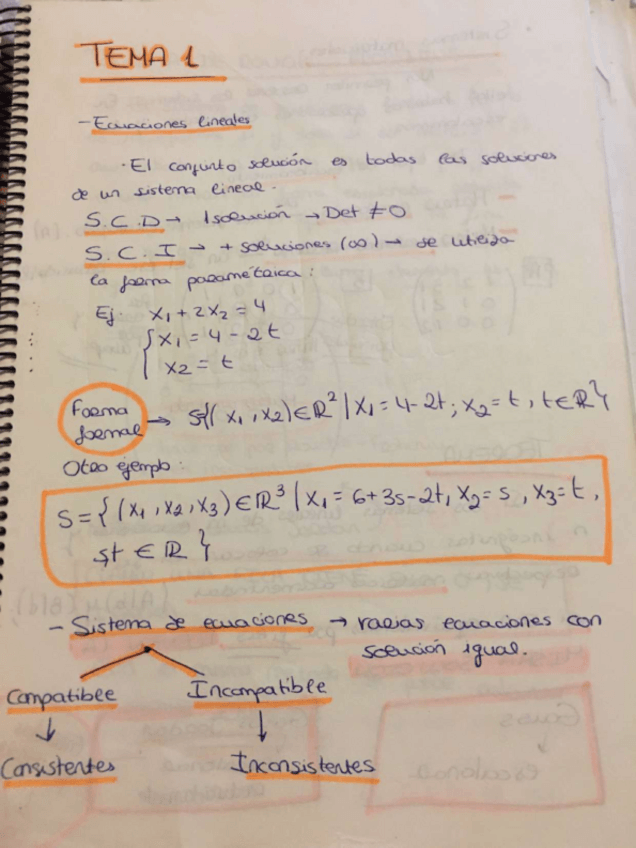 TEMA 1
- Ecuaciones lineales
· El conjunto solución es todas las soluciones
de un sistema lineal.
S.C.D → 1 solución → Det ≠ 0
S.C.I → + soluciones (∞) → se utiliza
la forma paramétrica:
Ej: x₁ + 2x₂ = 4
{ x₁ = 4 - 2t
x₂ = t
Forma formal → S{(x₁, x₂) ∈ ℝ² | x₁ = 4 - 2t; x₂ = t, t ∈ ℝ}
Otro ejemplo:
S = { (x₁, x₂, x₃) ∈ ℝ³ | x₁ = 6 + 3s - 2t, x₂ = s, x₃ = t,
s,t ∈ ℝ }
- Sistema de ecuaciones → varias ecuaciones con
solución igual.
Compatible Incompatible
↓ ↓
Consistentes Inconsistentes